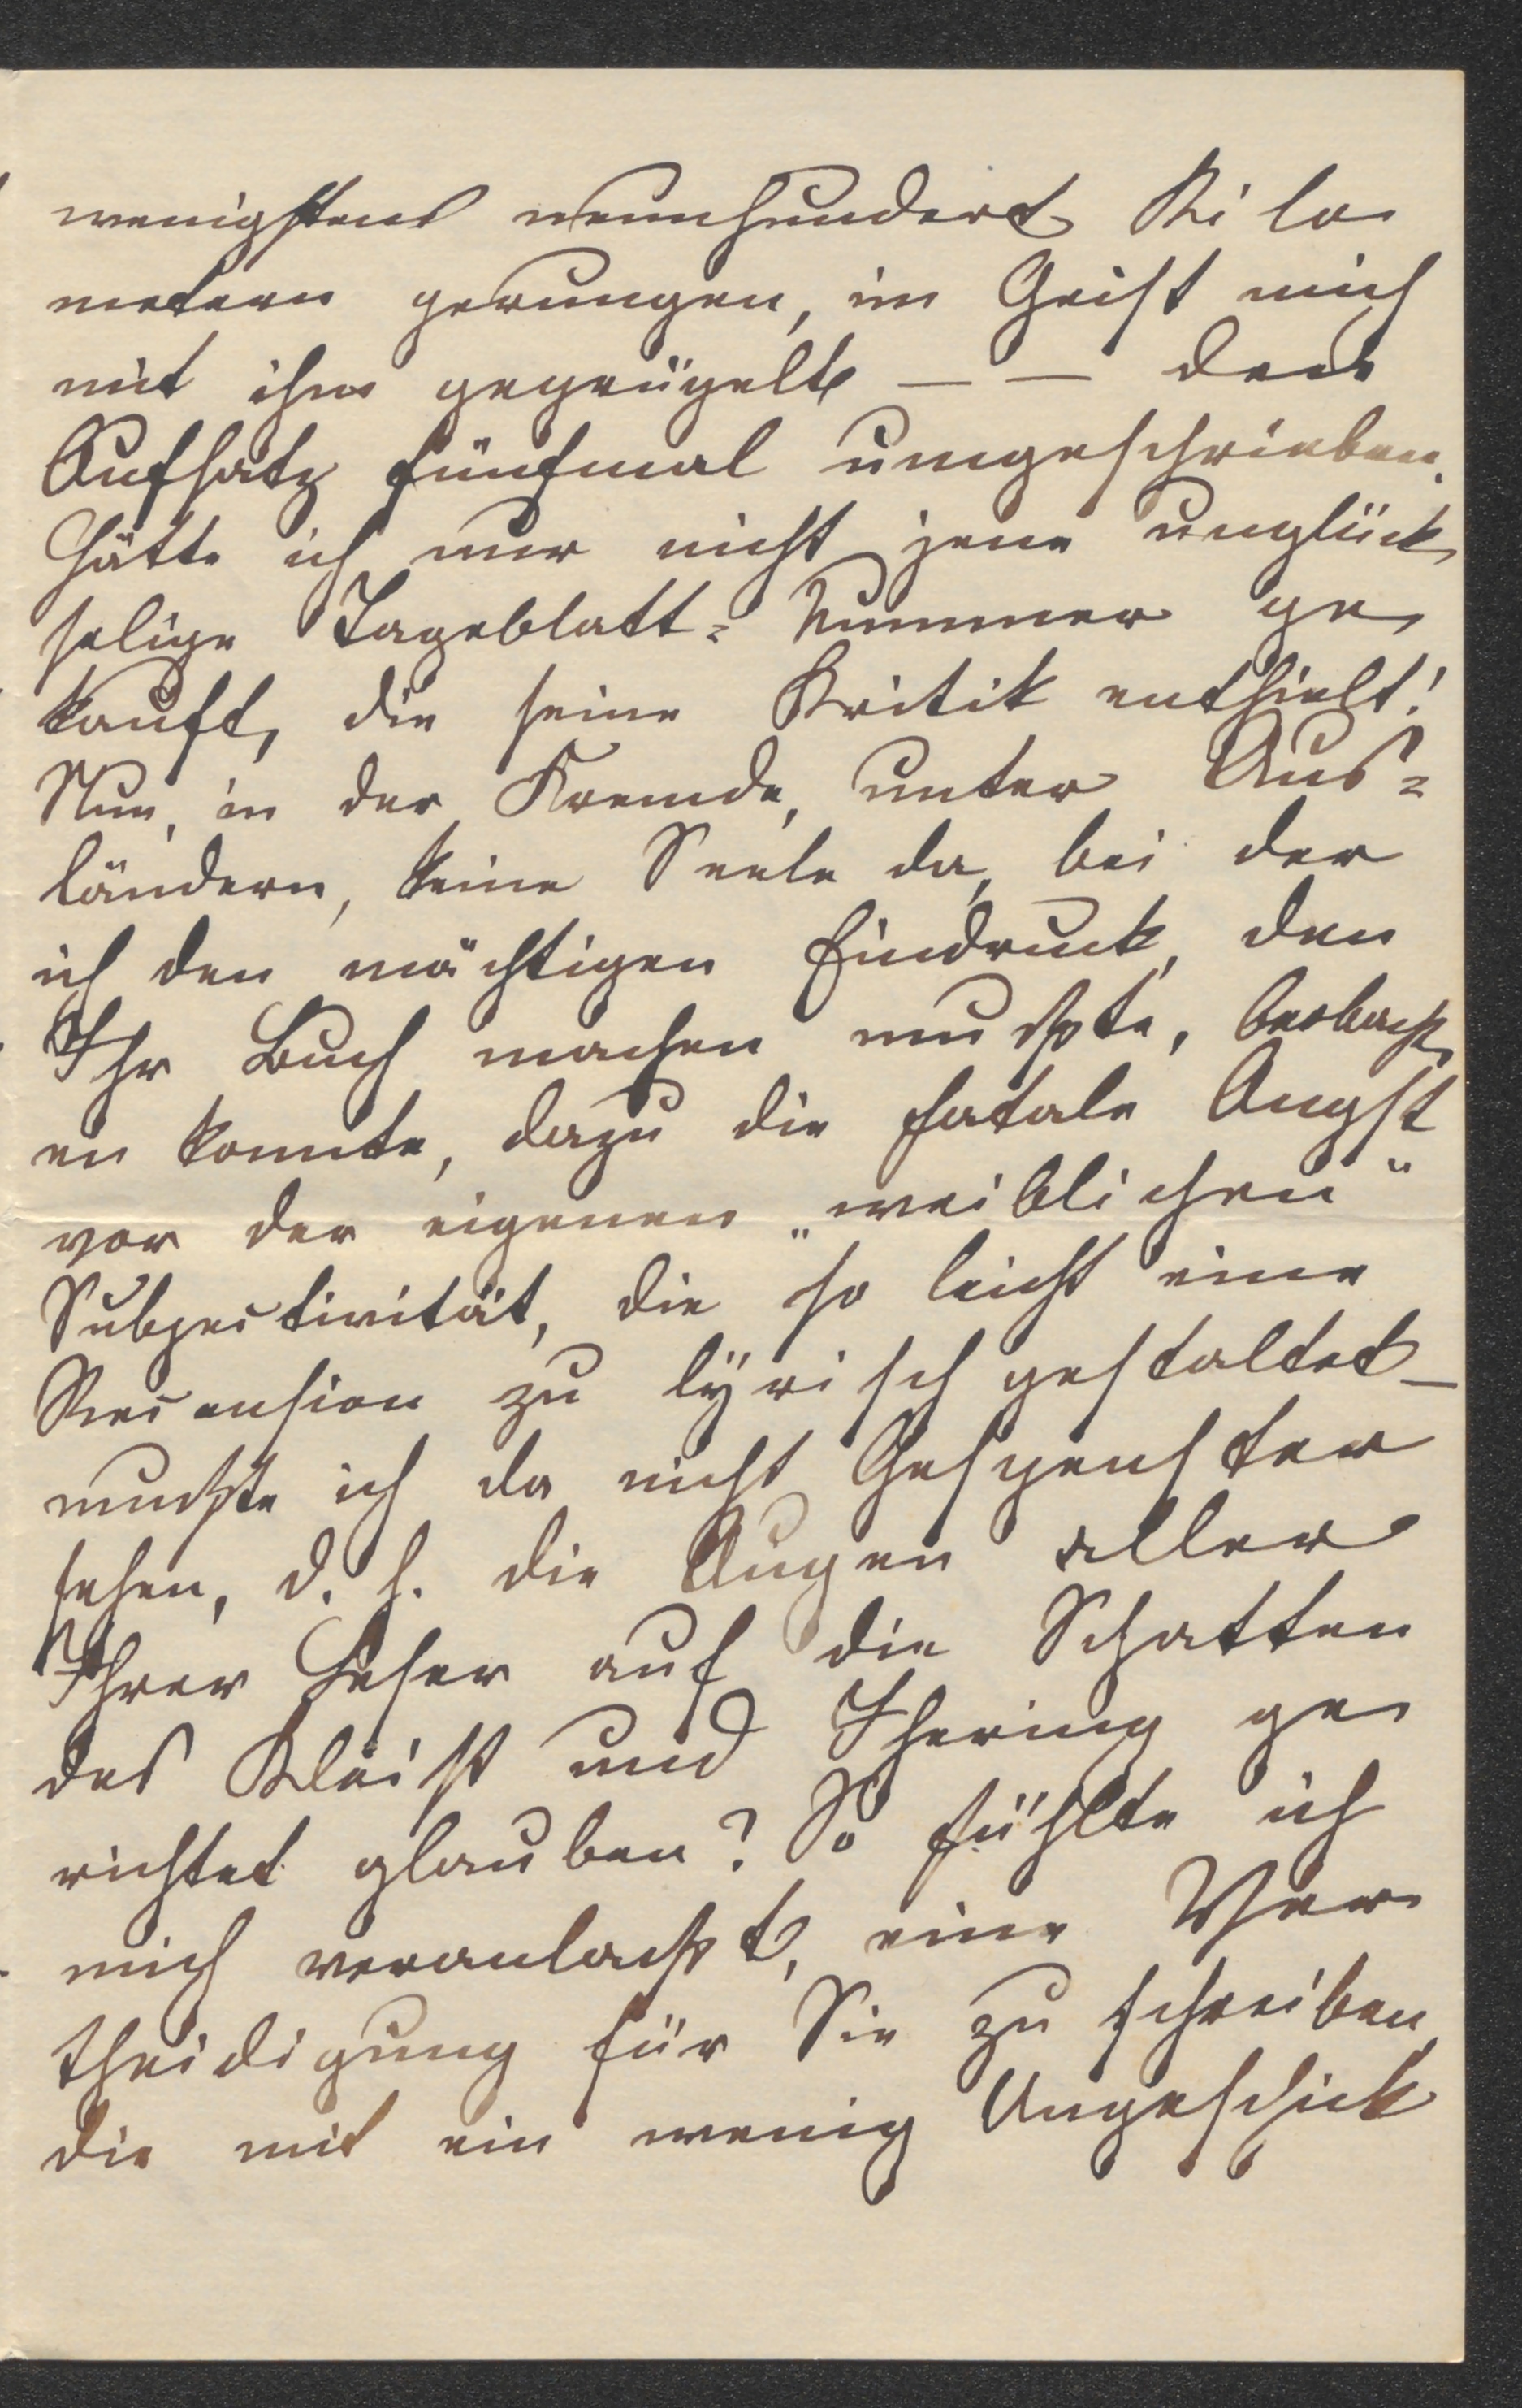 wenigstens neunhundert Kilo
metern gerungen, im Geist mich
mit ihm geprügelt — — den
Aufsatz fünfmal umgeschrieben.
Hätte ich nur nicht jene unglück
selige Tageblatt-Nummer ge
kauft, die seine Kritik enthielt!
Nun, in der Fremde, unter Aus-
ländern, keine Seele da, bei der
ich den mächtigen Eindruck, den
Ihr Buch machen mußte, beobacht
en konnte, dazu die fatale Angst
vor der eigenen „weiblichen“
Subjectivität, die so leicht eine
Recension zu lÿrisch gestaltet —
mußte ich da nicht Gespenster
sehen, d. h. die Augen aller
Ihrer Leser auf die Schatten
des Kleist und Ihering ge
richtet glauben? So fühlte ich
mich veranlaßt, eine Ver
theidigung für Sie zu schreiben,
die mit ein wenig Ungeschick